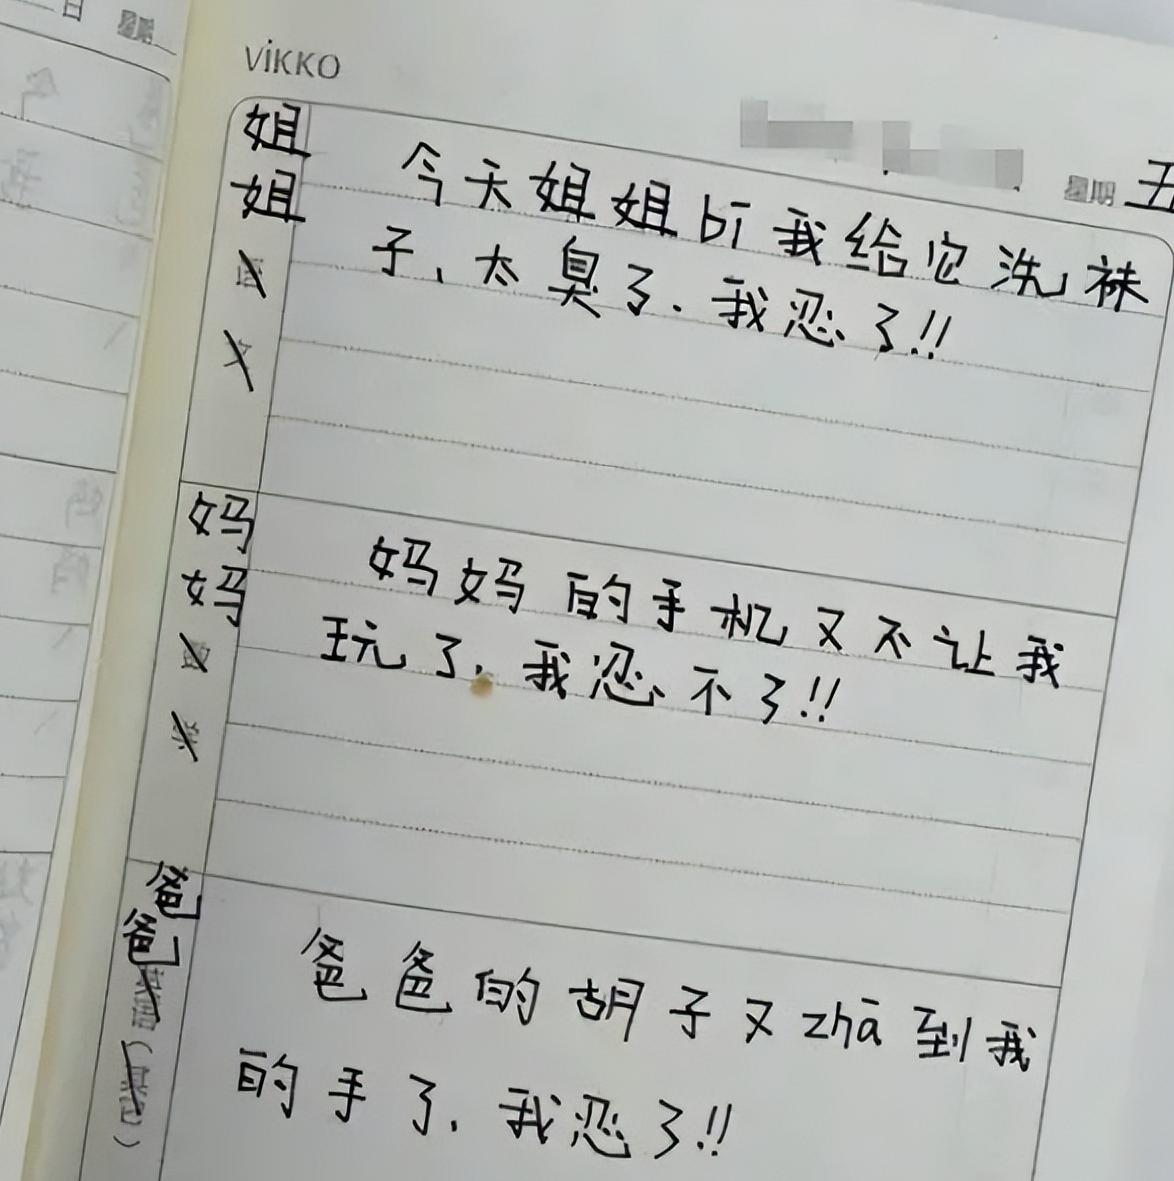 VIKKO
星期 五
姐姐
今天姐姐bī我给它洗袜
子、太臭了.我忍了!!
妈妈
妈妈的手机又不让我
玩了.我忍不了!!
爸爸
爸爸的胡子又zhā到我
的手了.我忍了!!